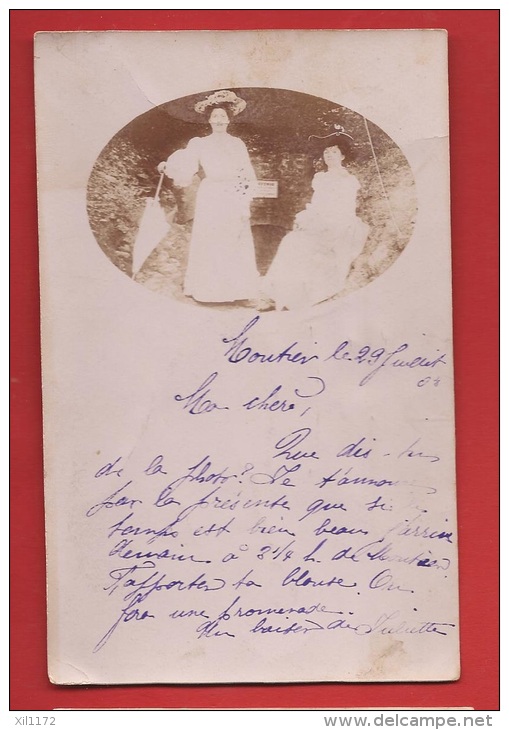 Moutier le 29 Juillet
04
Ma chère,
Que dis-tu
de la photo? Je t'annonce
par la présente que si le
temps est bien beau, j'arrive
demain à 2 1/4 h. de Moutier.
T'apporter ta blouse. On
fera une promenade.
Un baiser de Juliette
xil1172
www.delcampe.net